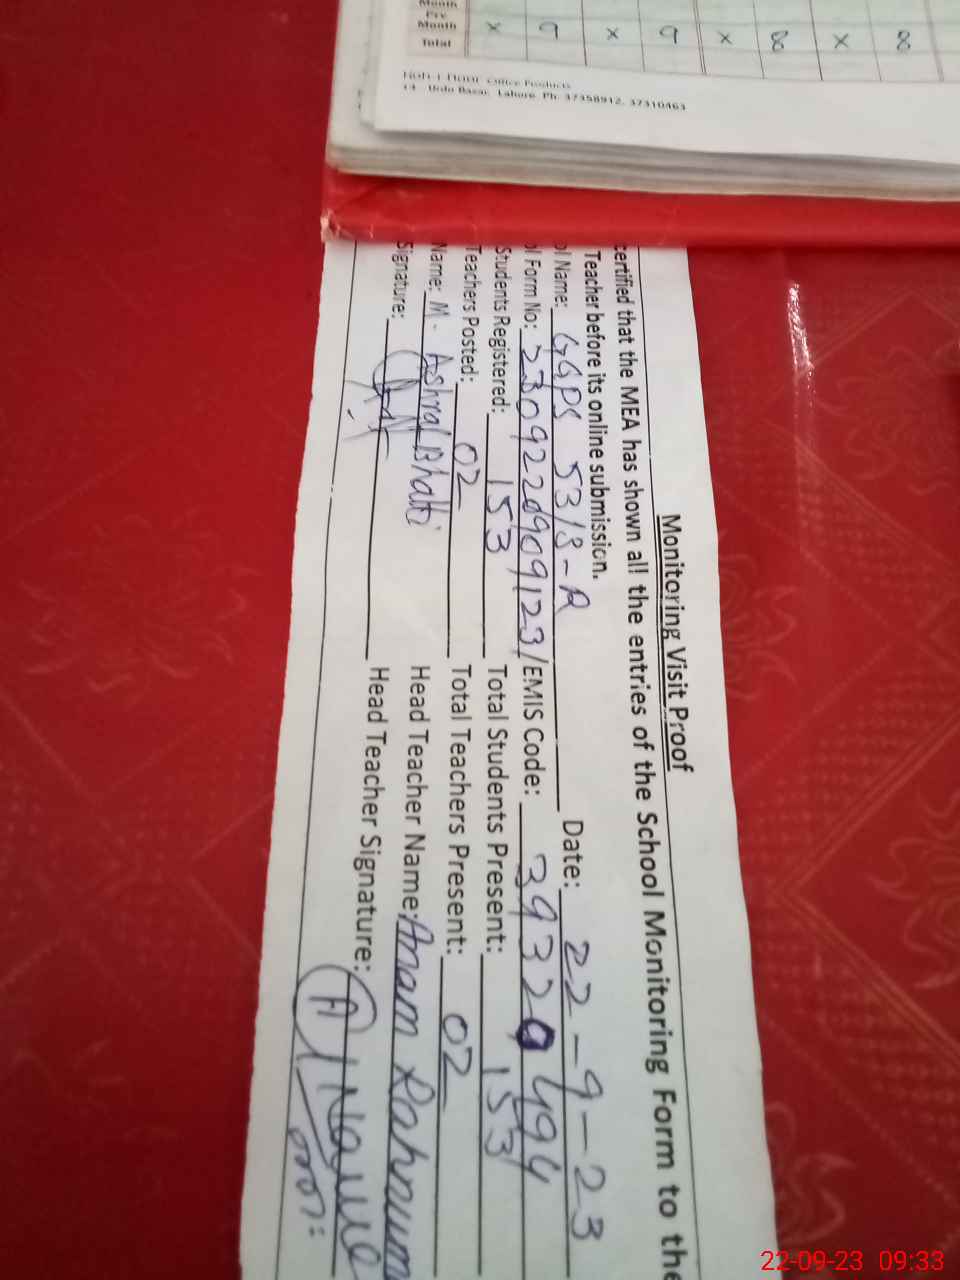 Month
Pre
Month
Total
x σ x σ x 00 x 00
Office Products
14 - Urdu Bazar, Lahore. Ph: 37358912, 37310463
Monitoring Visit Proof
certified that the MEA has shown all the entries of the School Monitoring Form to the
Teacher before its online submission.
ol Name: GGPS 53/3-R Date: 22-9-23
ol Form No: 2309220909123/ EMIS Code: 39320494
Students Registered: 153 Total Students Present: 153
Teachers Posted: 02 Total Teachers Present: 02
Name: M. Ashraf Bhatti Head Teacher Name: Anam Rahnum
Signature: Head Teacher Signature:
22-09-23 09:33